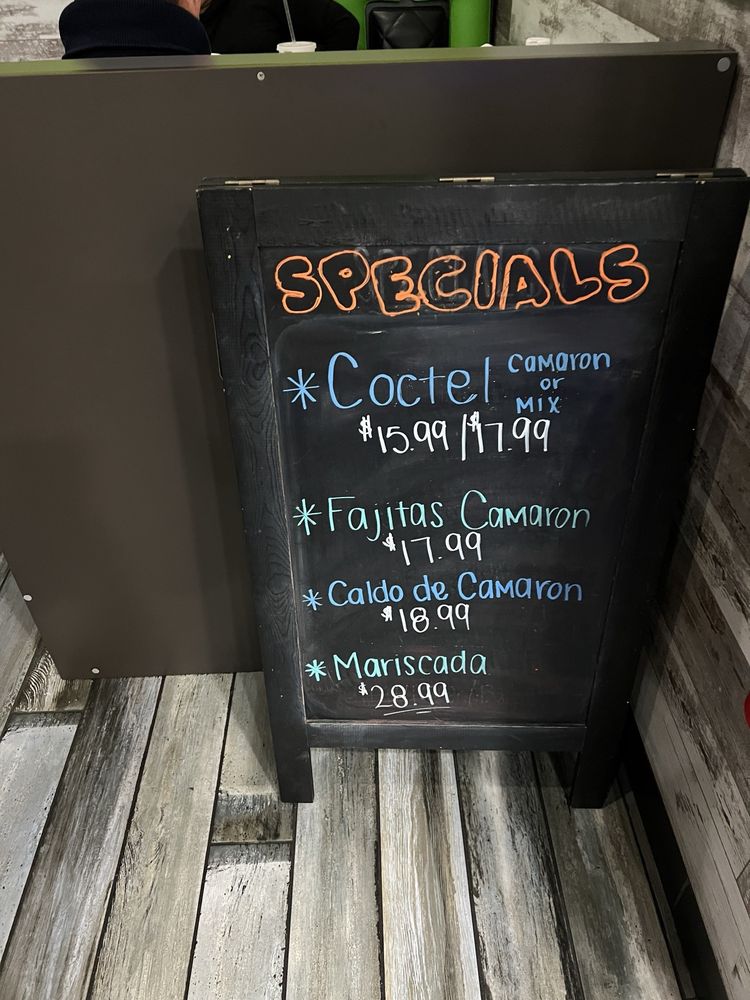 SPECIALS
* Coctel Camaron
or
MIX
$15.99 / $17.99
* Fajitas Camaron
$17.99
* Caldo de Camaron
$18.99
* Mariscada
$28.99